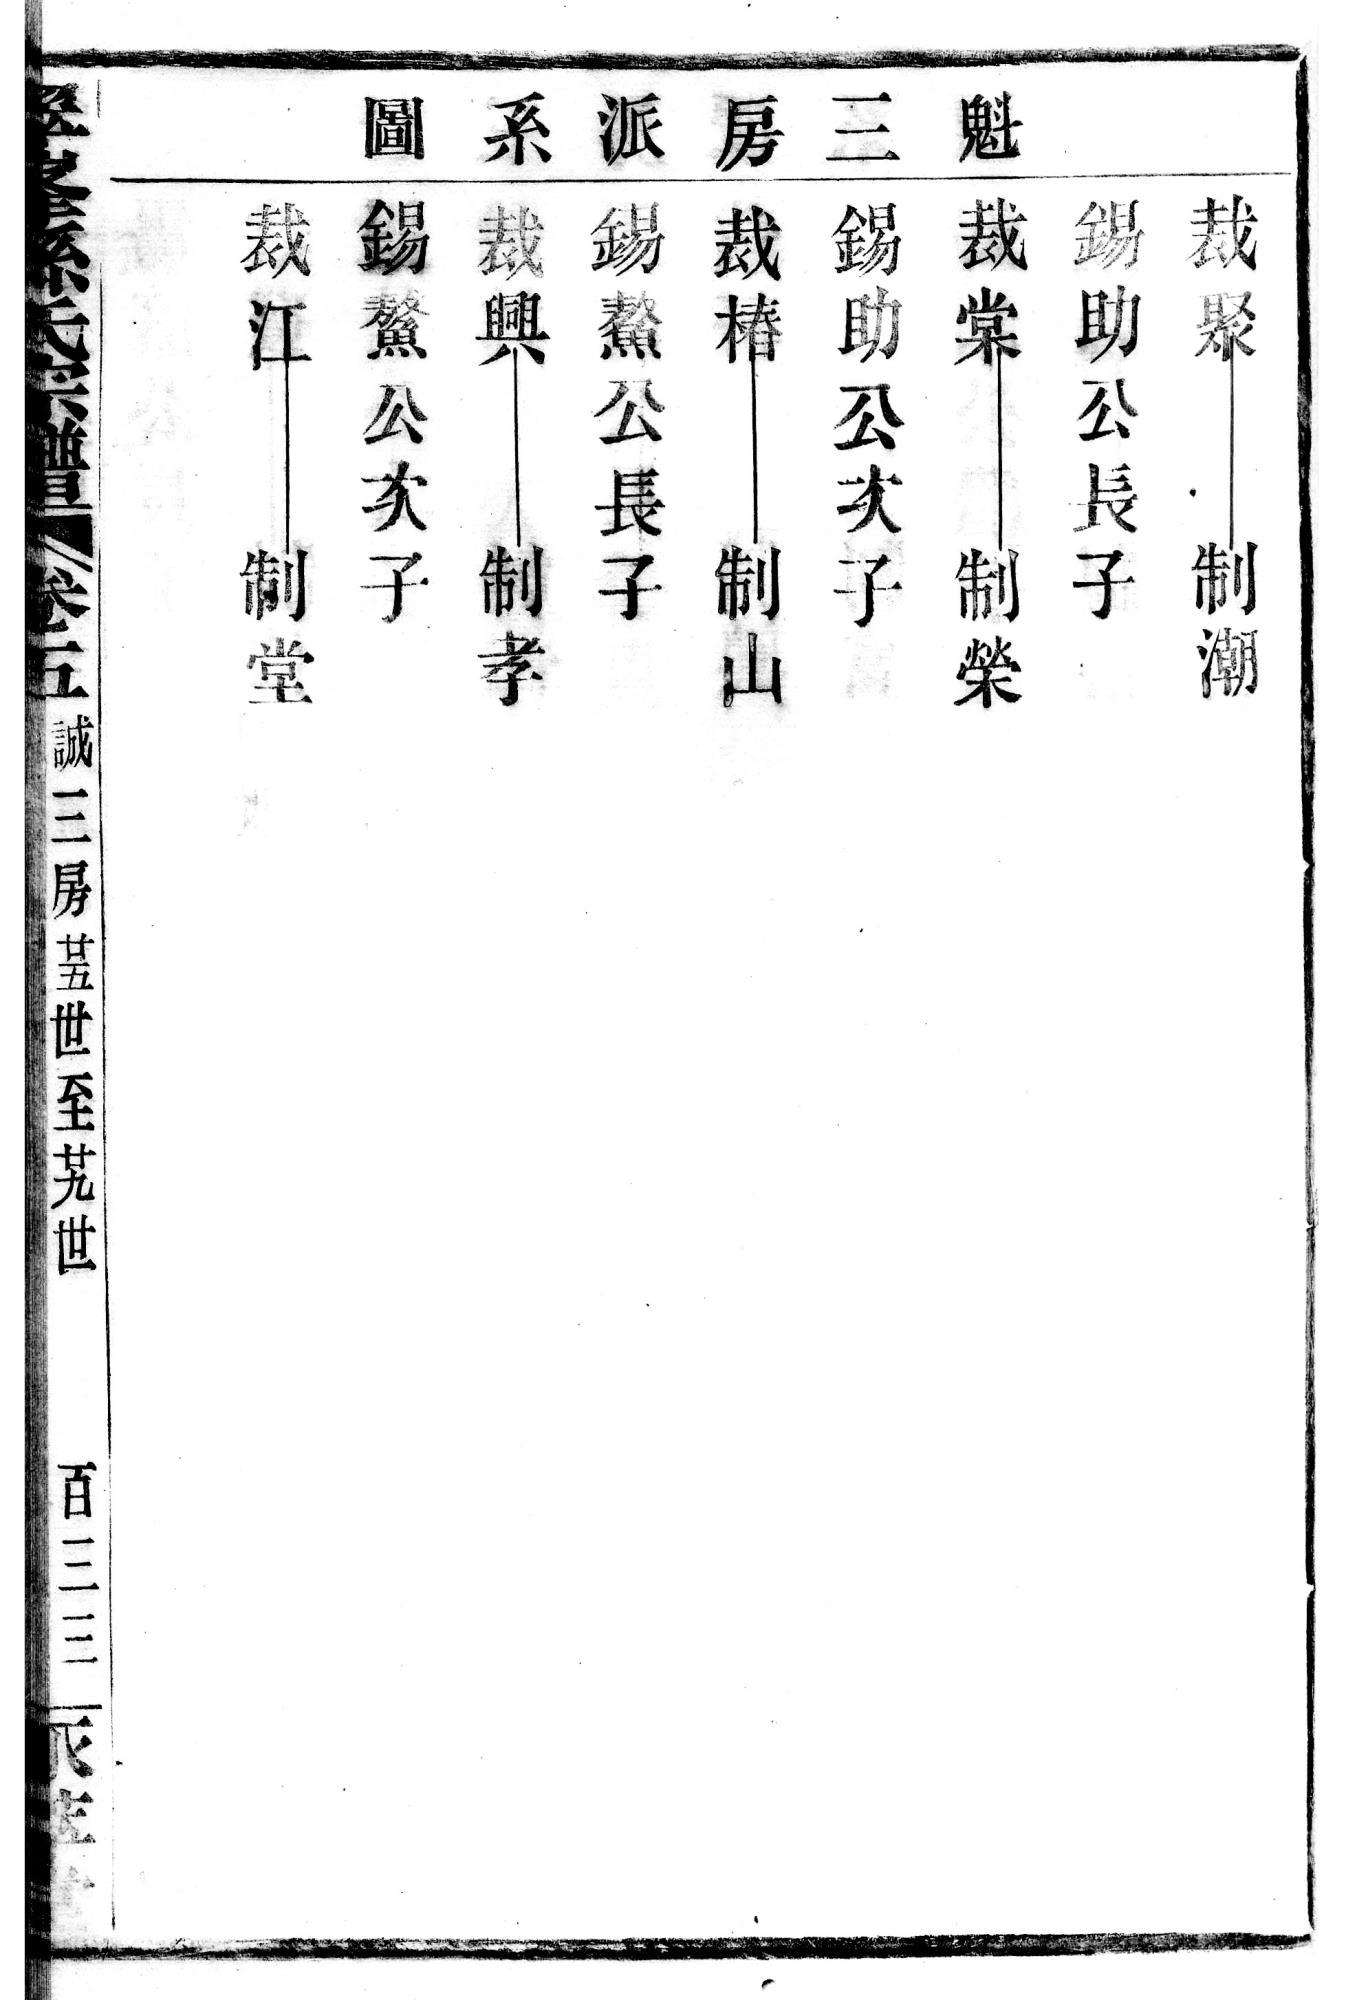 魁三房派系圖
裁聚 制潮
錫助公長子
裁棠 制榮
錫助公次子
裁椿 制山
錫鰲公長子
裁興 制孝
錫鰲公次子
裁江 制堂
氏宗譜 卷五 誠三房 廿五世至廿九世 百三三